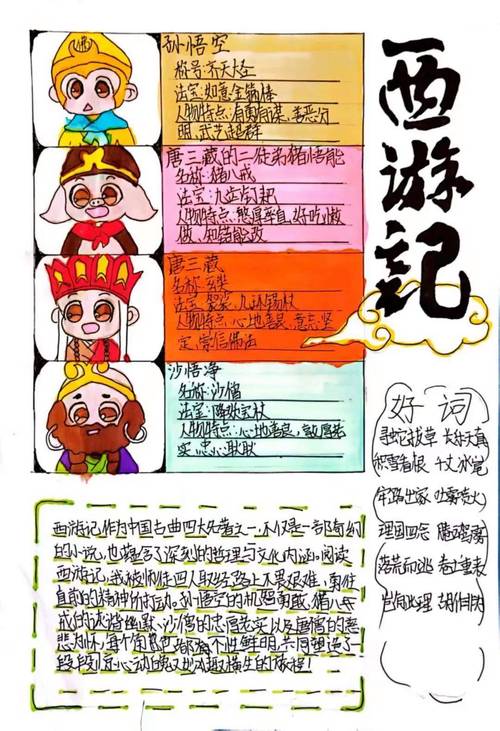 西游记
孙悟空
称号:齐天大圣
法宝:如意金箍棒
人物特点:有勇有谋、善恶分
明、武艺超群
唐三藏的二徒弟猪悟能
名称:猪八戒
法宝:九齿钉耙
人物特点:憨厚率直、好吃懒
做、知错能改
唐三藏
名称:玄奘
法宝:袈裟、九环锡杖
人物特点:心地善良、意志坚
定、崇信佛法
沙悟净
名称:沙僧
法宝:降妖宝杖
人物特点:心地善良、敦厚老
实、忠心耿耿
好词
寻蛇拔草 天真
千丈冰
出家 吐雾
落荒而逃
此理 胡作为
西游记作为中国古典四大名著之一,不仅是一部
的小说,也蕴含了深刻的哲理与文化内涵。阅读
西游记,我被师徒四人取经路上不畏艰难,
的精神所打动。孙悟空的机智勇敢、猪八
戒的诙谐幽默、沙僧的忠厚老实以及唐僧的慈
悲为怀,每个角色都个性鲜明,共同塑造了一
段段惊心动魄又妙趣横生的旅程!